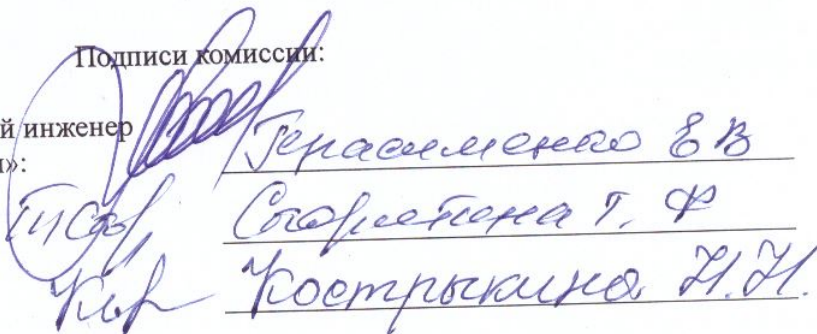 Подписи комиссии:
й инженер
»:
Герасименко Е В
Т. Ф
Кострыкина Н.Н.